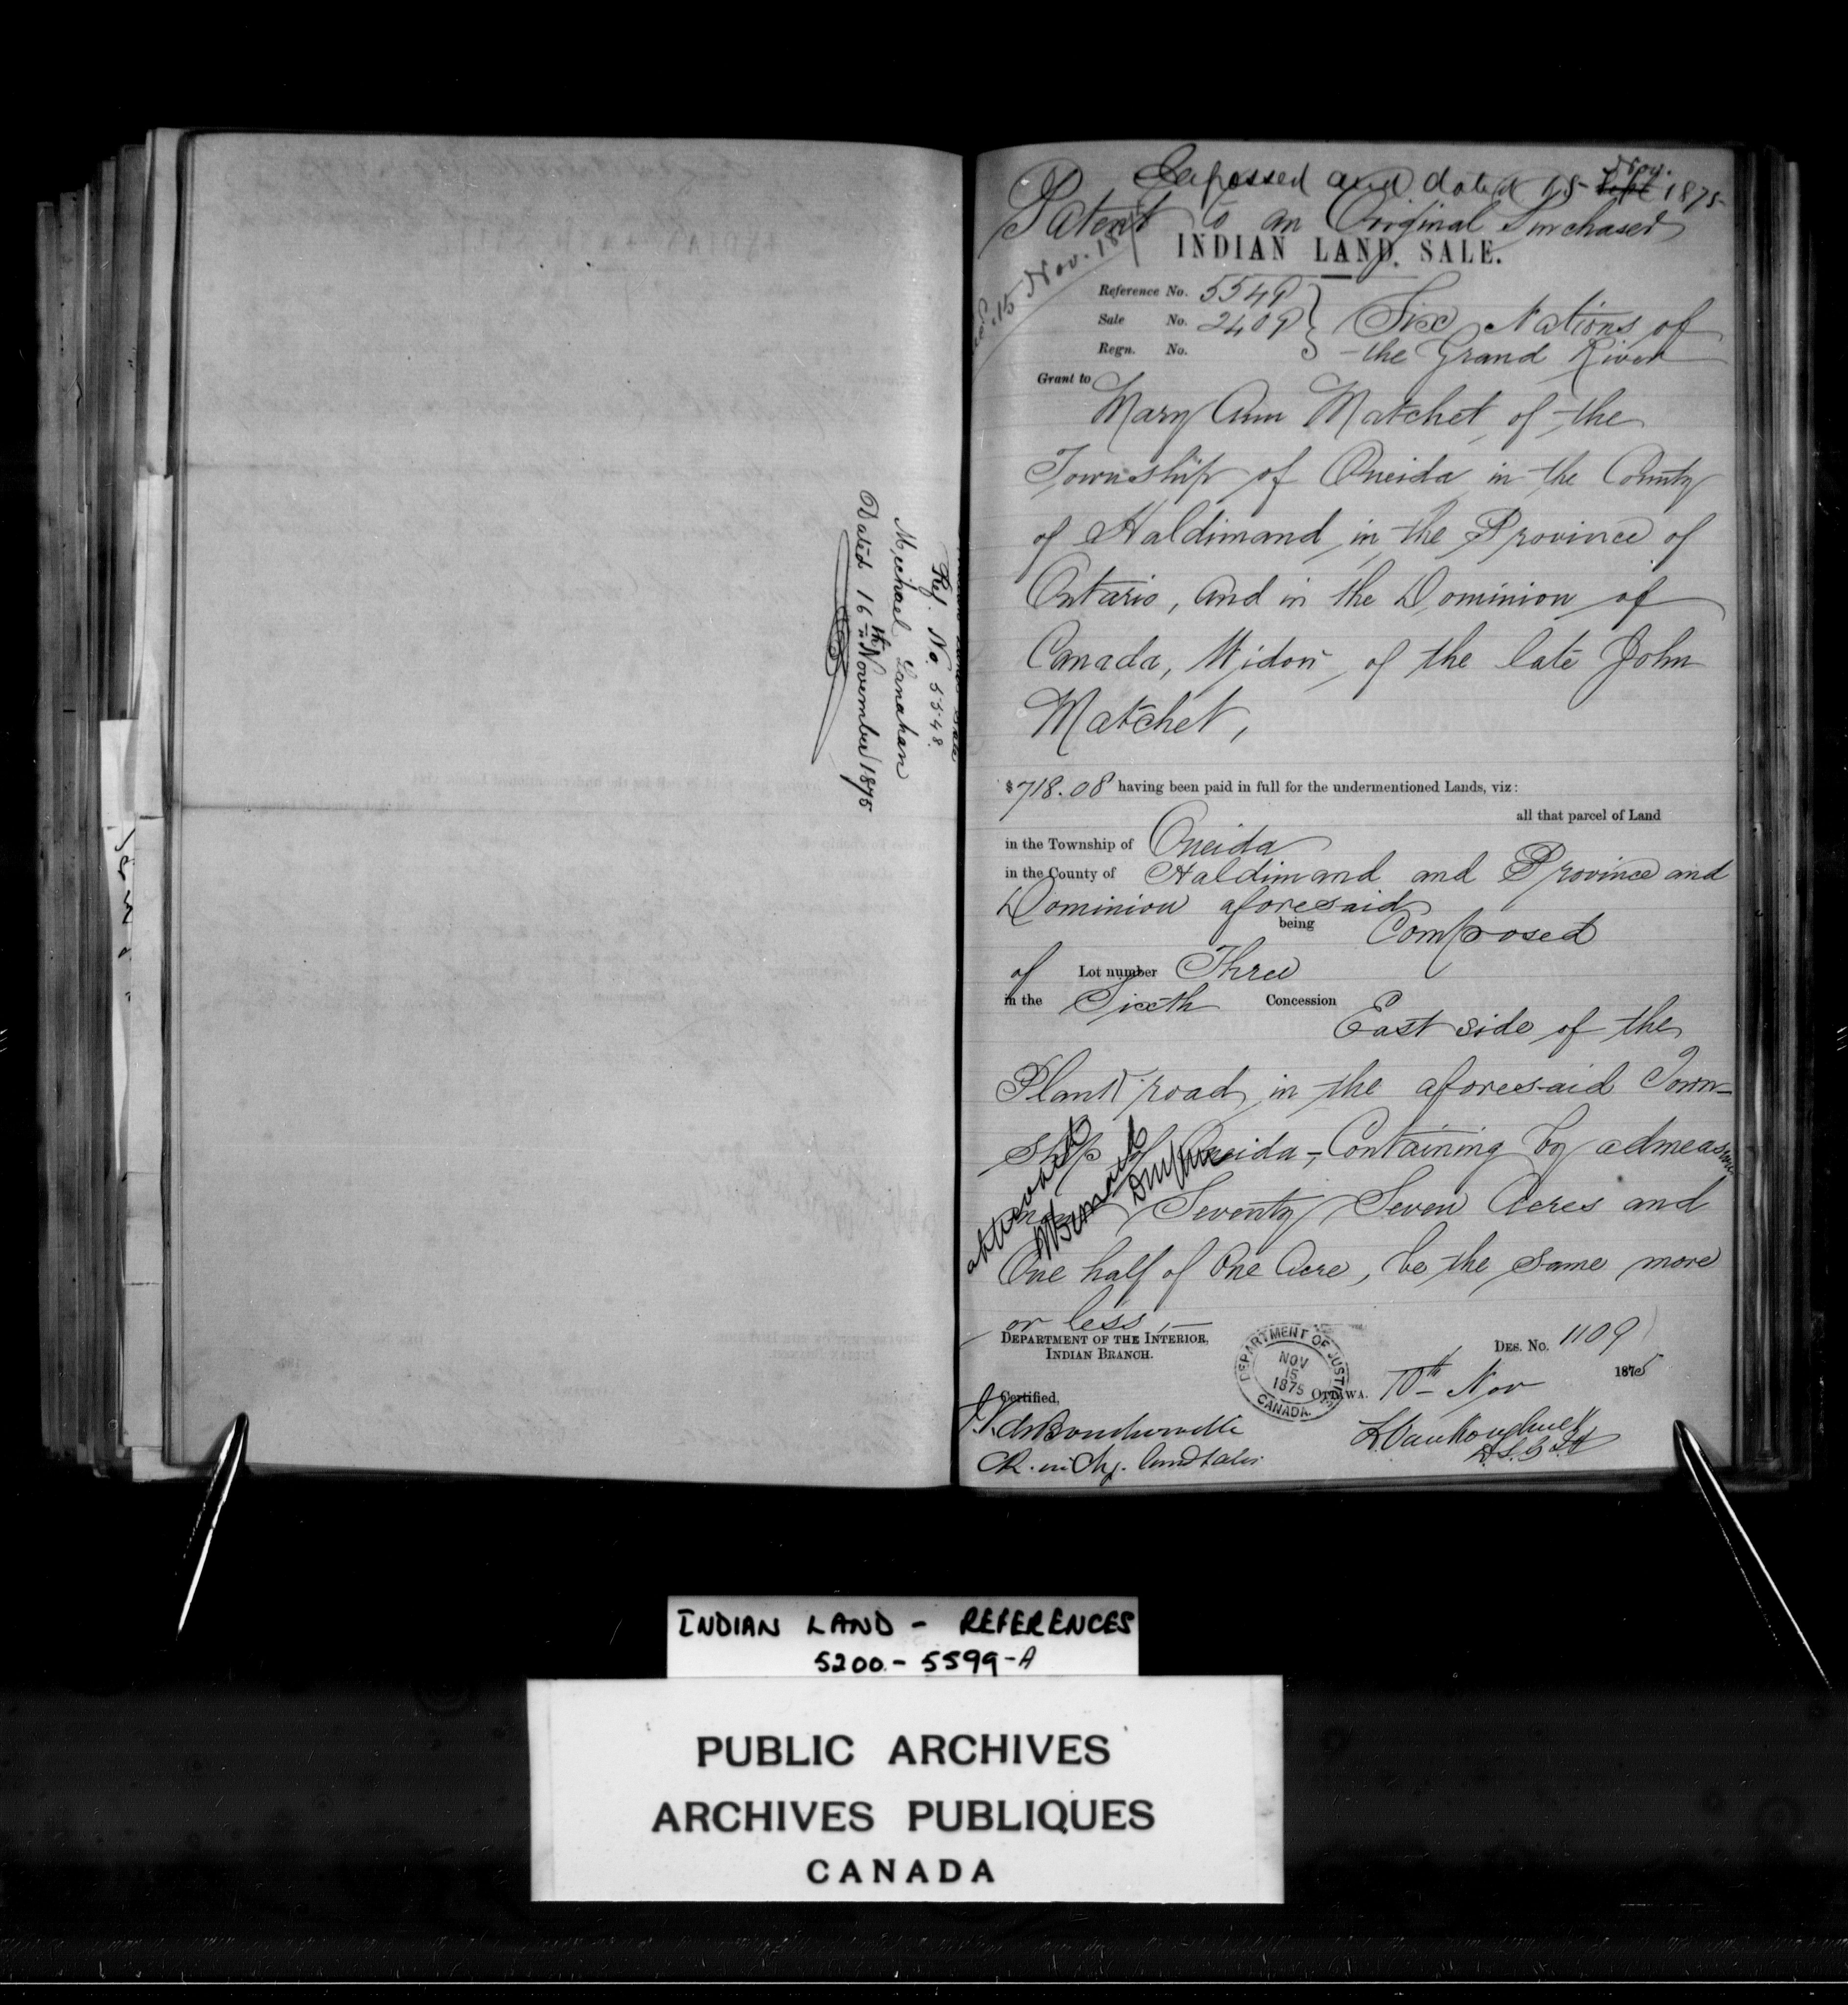 Ref. No. 5548
Michael Lanahan
Dated 16th November 1875
Engrossed and dated 15 Sept Nov. 1875
Patent to an Original Purchaser
INDIAN LAND SALE.
15 Nov. 18
Reference No. 5549
Sale No. 2409
Regn. No.
Six Nations of
the Grand River
Grant to
Mary Ann Matchet, of the
Township of Oneida in the County
of Haldimand in the Province of
Ontario, and in the Dominion of
Canada, Widow, of the late John
Matchet,
$718.08 having been paid in full for the undermentioned Lands, viz:
all that parcel of Land
in the Township of Oneida
in the County of Haldimand and Province and
Dominion aforesaid
being Composed
of Lot number Three
in the Sixth Concession
East side of the
Plank road, in the aforesaid Town-
ship of Oneida, Containing by admeasure
ment Seventy Seven Acres and
One half of One Acre, be the same more
or less,
DEPARTMENT OF THE INTERIOR,
INDIAN BRANCH.
DES. No. 1109
DEPARTMENT OF JUSTICE
NOV
15
1875
CANADA.
OTTAWA. 10th Nov 1875
Certified,
J. V. de Boucherville
L Vankoughnet
INDIAN LAND - REFERENCES
5200 - 5599-A
PUBLIC ARCHIVES
ARCHIVES PUBLIQUES
CANADA